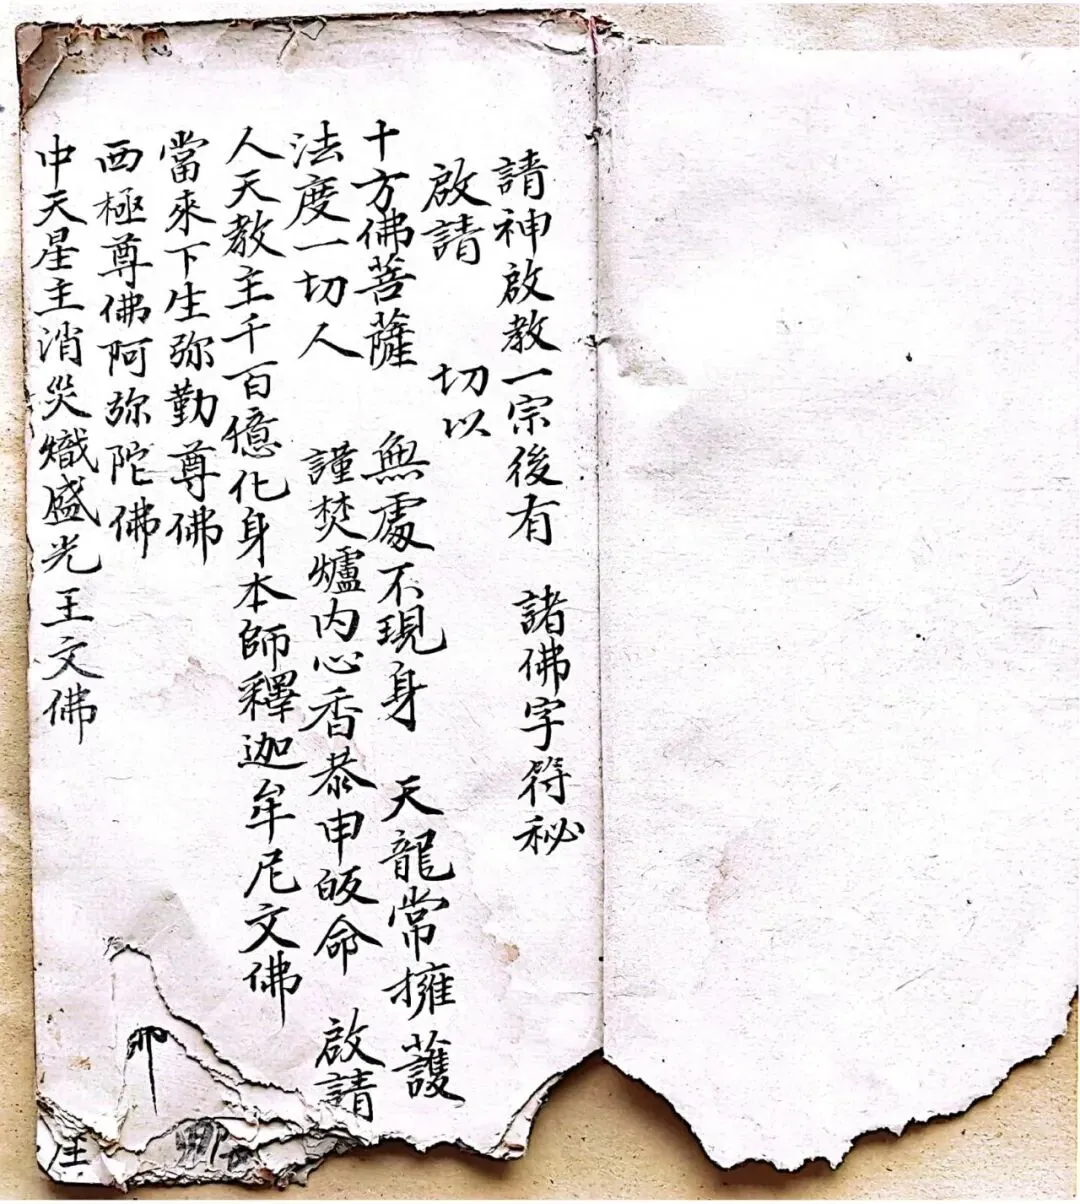 請神啟教一宗後有 諸佛字符秘
啟請 切以
十方佛菩薩 無處不現身 天龍常擁護
法度一切人 謹焚爐内心香恭申皈命 啟請
人天教主千百億化身本師釋迦牟尼文佛
當來下生弥勤尊佛
西極尊佛阿弥陀佛
中天星主消災熾盛光王文佛